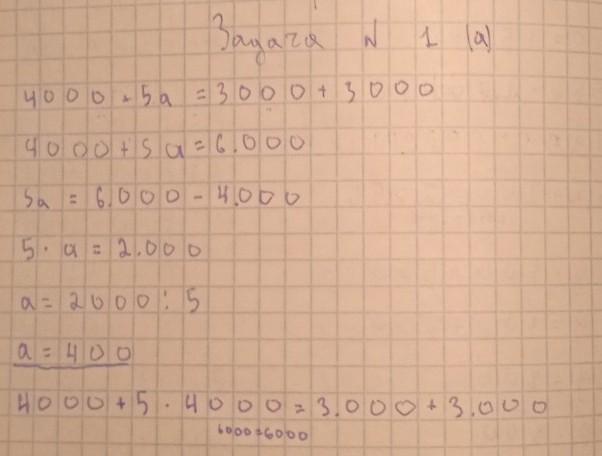 Задача N 1 (а)
4000 + 5a = 3000 + 3000
4000 + 5a = 6.000
5a = 6.000 - 4.000
5 · a = 2.000
a = 2000 : 5
a = 400
4000 + 5 · 4000 = 3.000 + 3.000
6000=6000